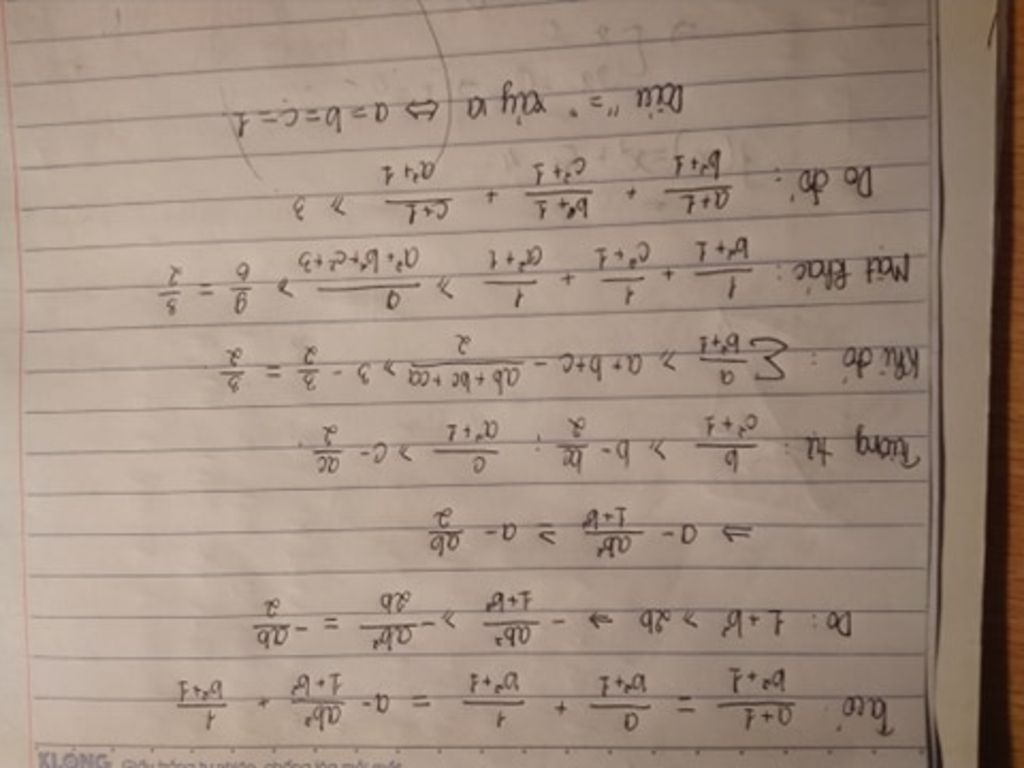 KLONG Giấy trắng tự nhiên, chống lóa mỏi mắt
Ta có: (a+1)/(b²+1) = a/(b²+1) + 1/(b²+1) = a - ab²/(1+b²) + 1/(b²+1)
Do: 1+b² ≥ 2b ⇒ -ab²/(1+b²) ≥ -ab²/2b = -ab/2
⇒ a - ab²/(1+b²) ≥ a - ab/2
Tương tự: b/(c²+1) ≥ b - bc/2 . c/(a²+1) ≥ c - ac/2 .
Khi đó: ∑ a/(b²+1) ≥ a+b+c - (ab+bc+ca)/2 ≥ 3 - 3/2 = 3/2
Mặt khác: 1/(b²+1) + 1/(c²+1) + 1/(a²+1) ≥ 9/(a²+b²+c²+3) ≥ 9/6 = 3/2
Do đó: (a+1)/(b²+1) + (b+1)/(c²+1) + (c+1)/(a²+1) ≥ 3
Dấu "=" xảy ra ⇔ a=b=c=1